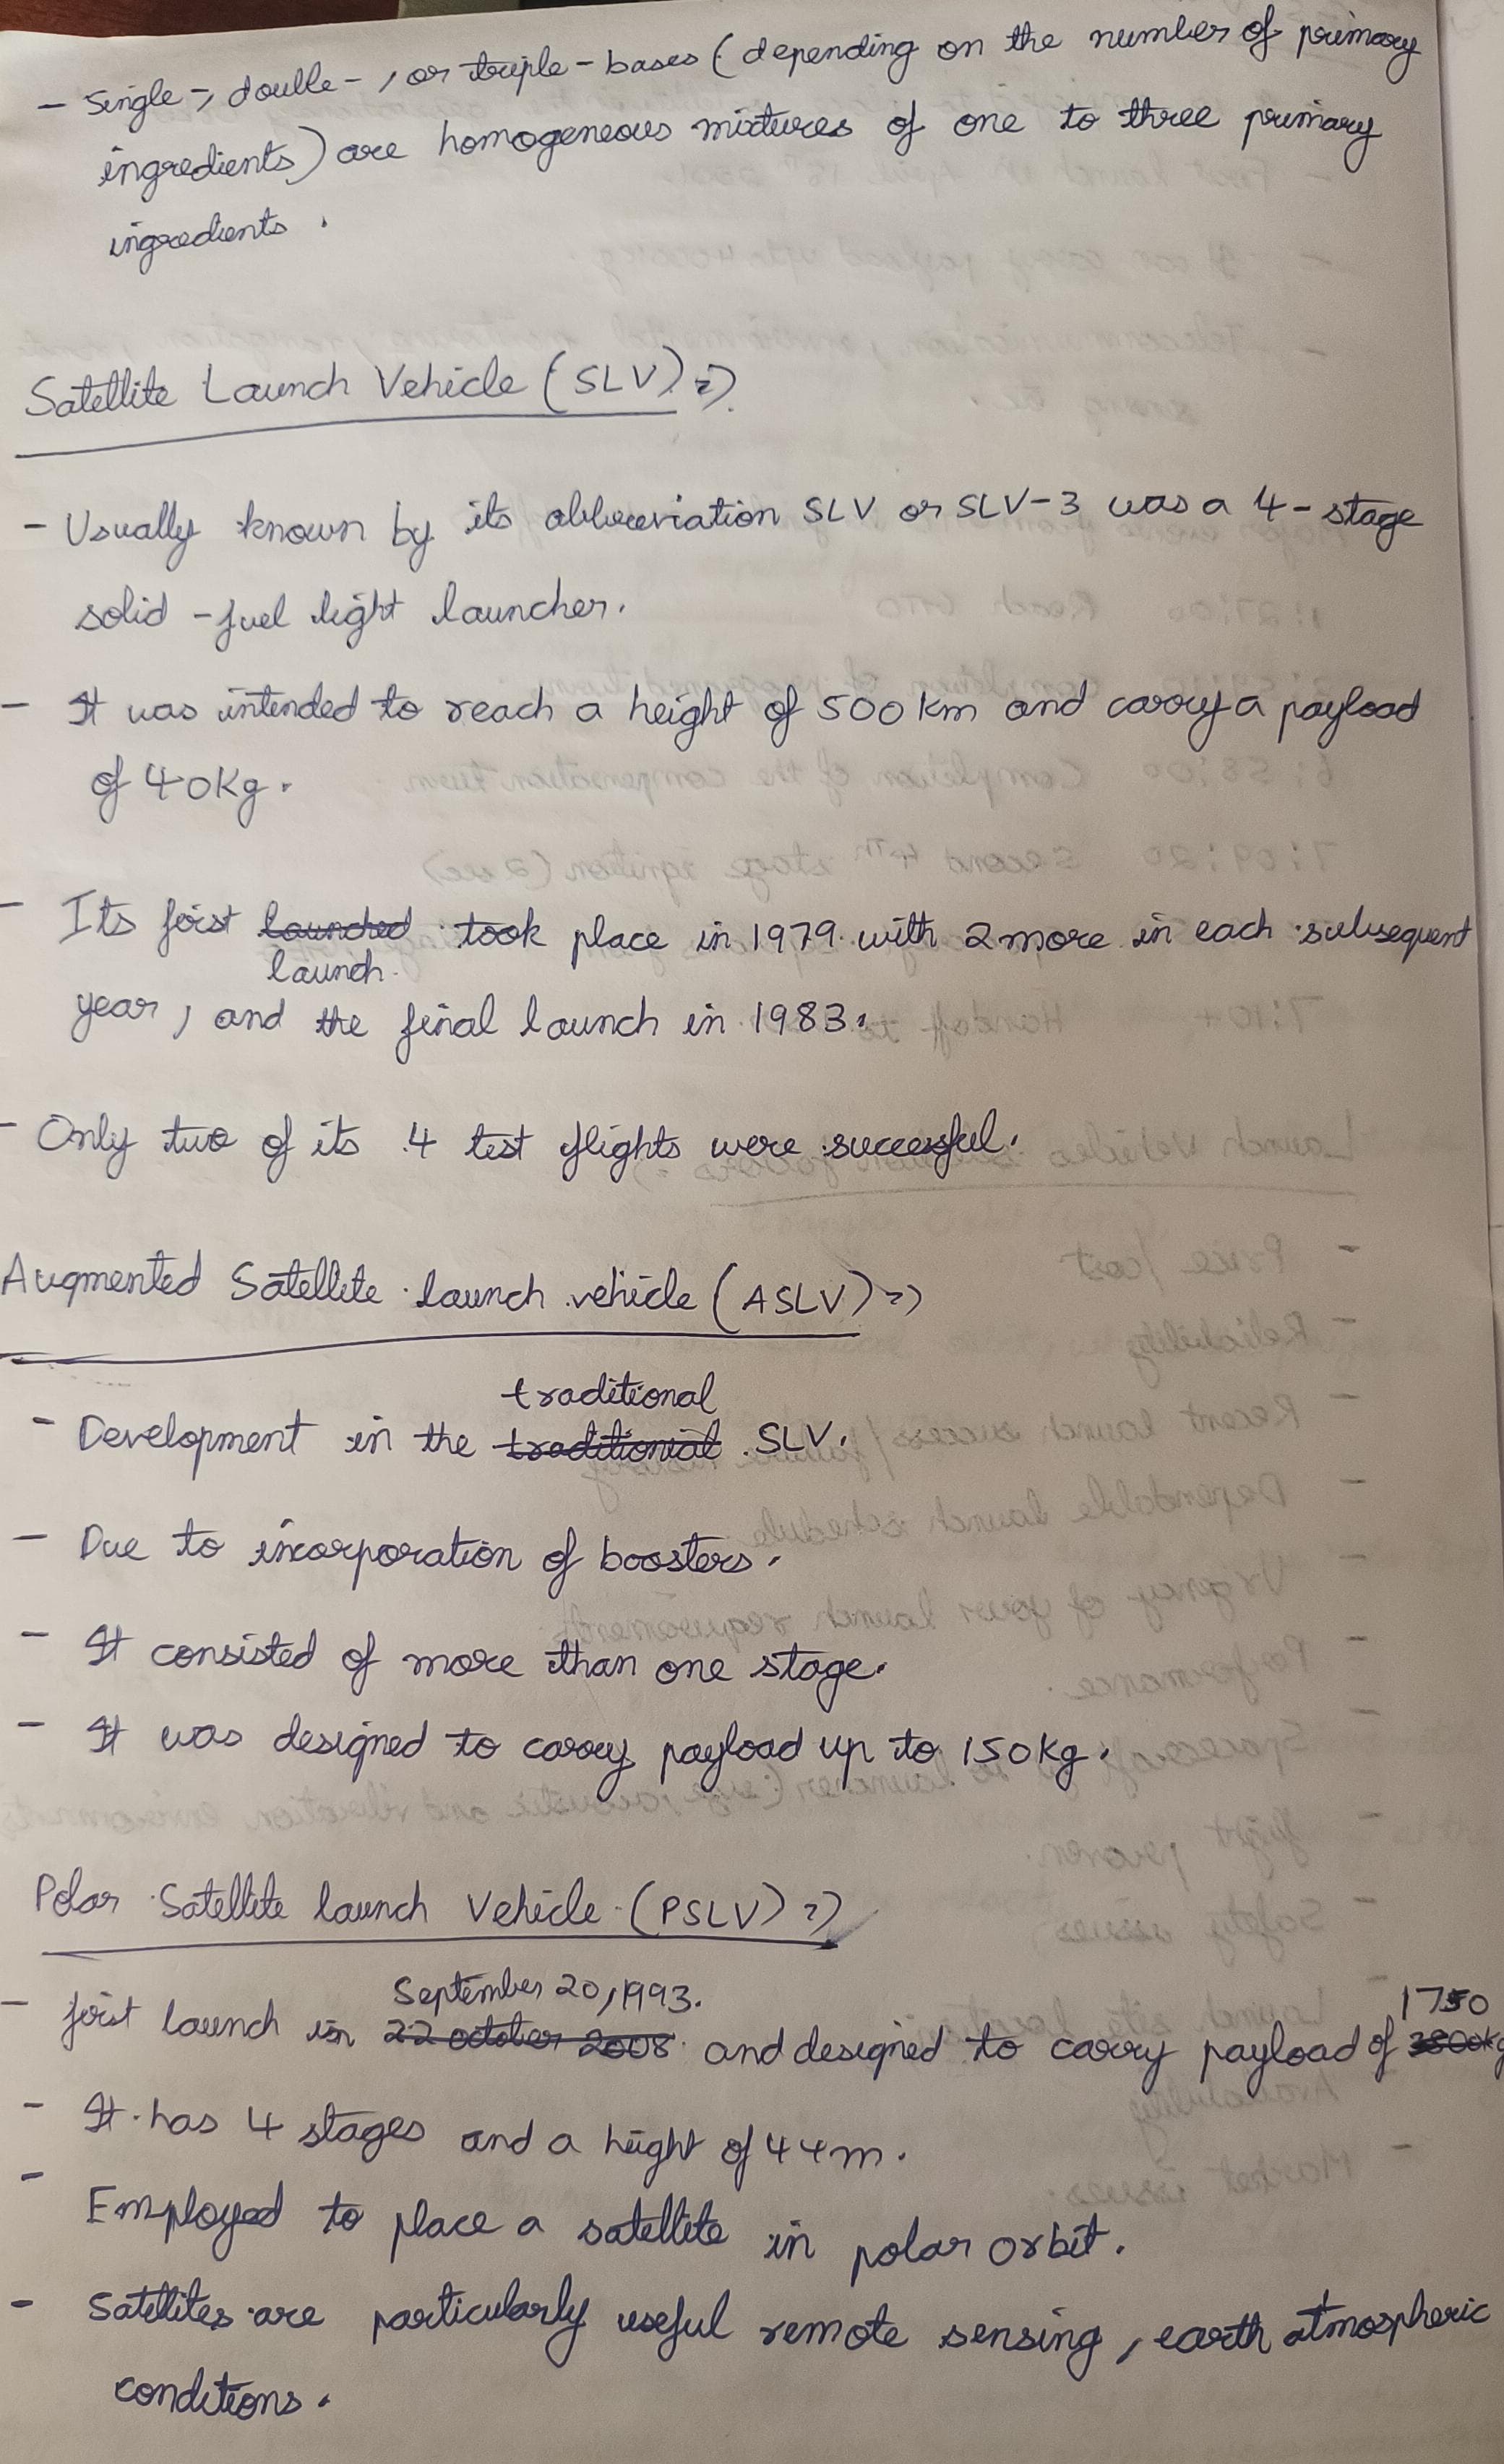 - Single-, double-, or triple-bases (depending on the number of primary
ingredients) are homogeneous mixtures of one to three primary
ingredients.
Satellite Launch Vehicle (SLV) =>
- Usually known by its abbreviation SLV or SLV-3 was a 4-stage
solid-fuel light launcher.
- It was intended to reach a height of 500 km and carry a payload
of 40Kg.
- Its first launched took place in 1979 with 2 more in each subsequent
launch
year, and the final launch in 1983.
- Only two of its 4 test flights were successful.
Augmented Satellite launch vehicle (ASLV) =>
traditional
- Development in the traditionial SLV.
- Due to incorporation of boosters.
- It consisted of more than one stage.
- It was designed to carry payload up to 150Kg.
Polar Satellite launch Vehicle (PSLV) =>
September 20, 1993. 1750
- first launch in 22 october 2008 and designed to carry payload of 3800kg
- It has 4 stages and a height of 44m.
- Employed to place a satellite in polar orbit.
- Satellites are particularly useful remote sensing, earth atmospheric
conditions.